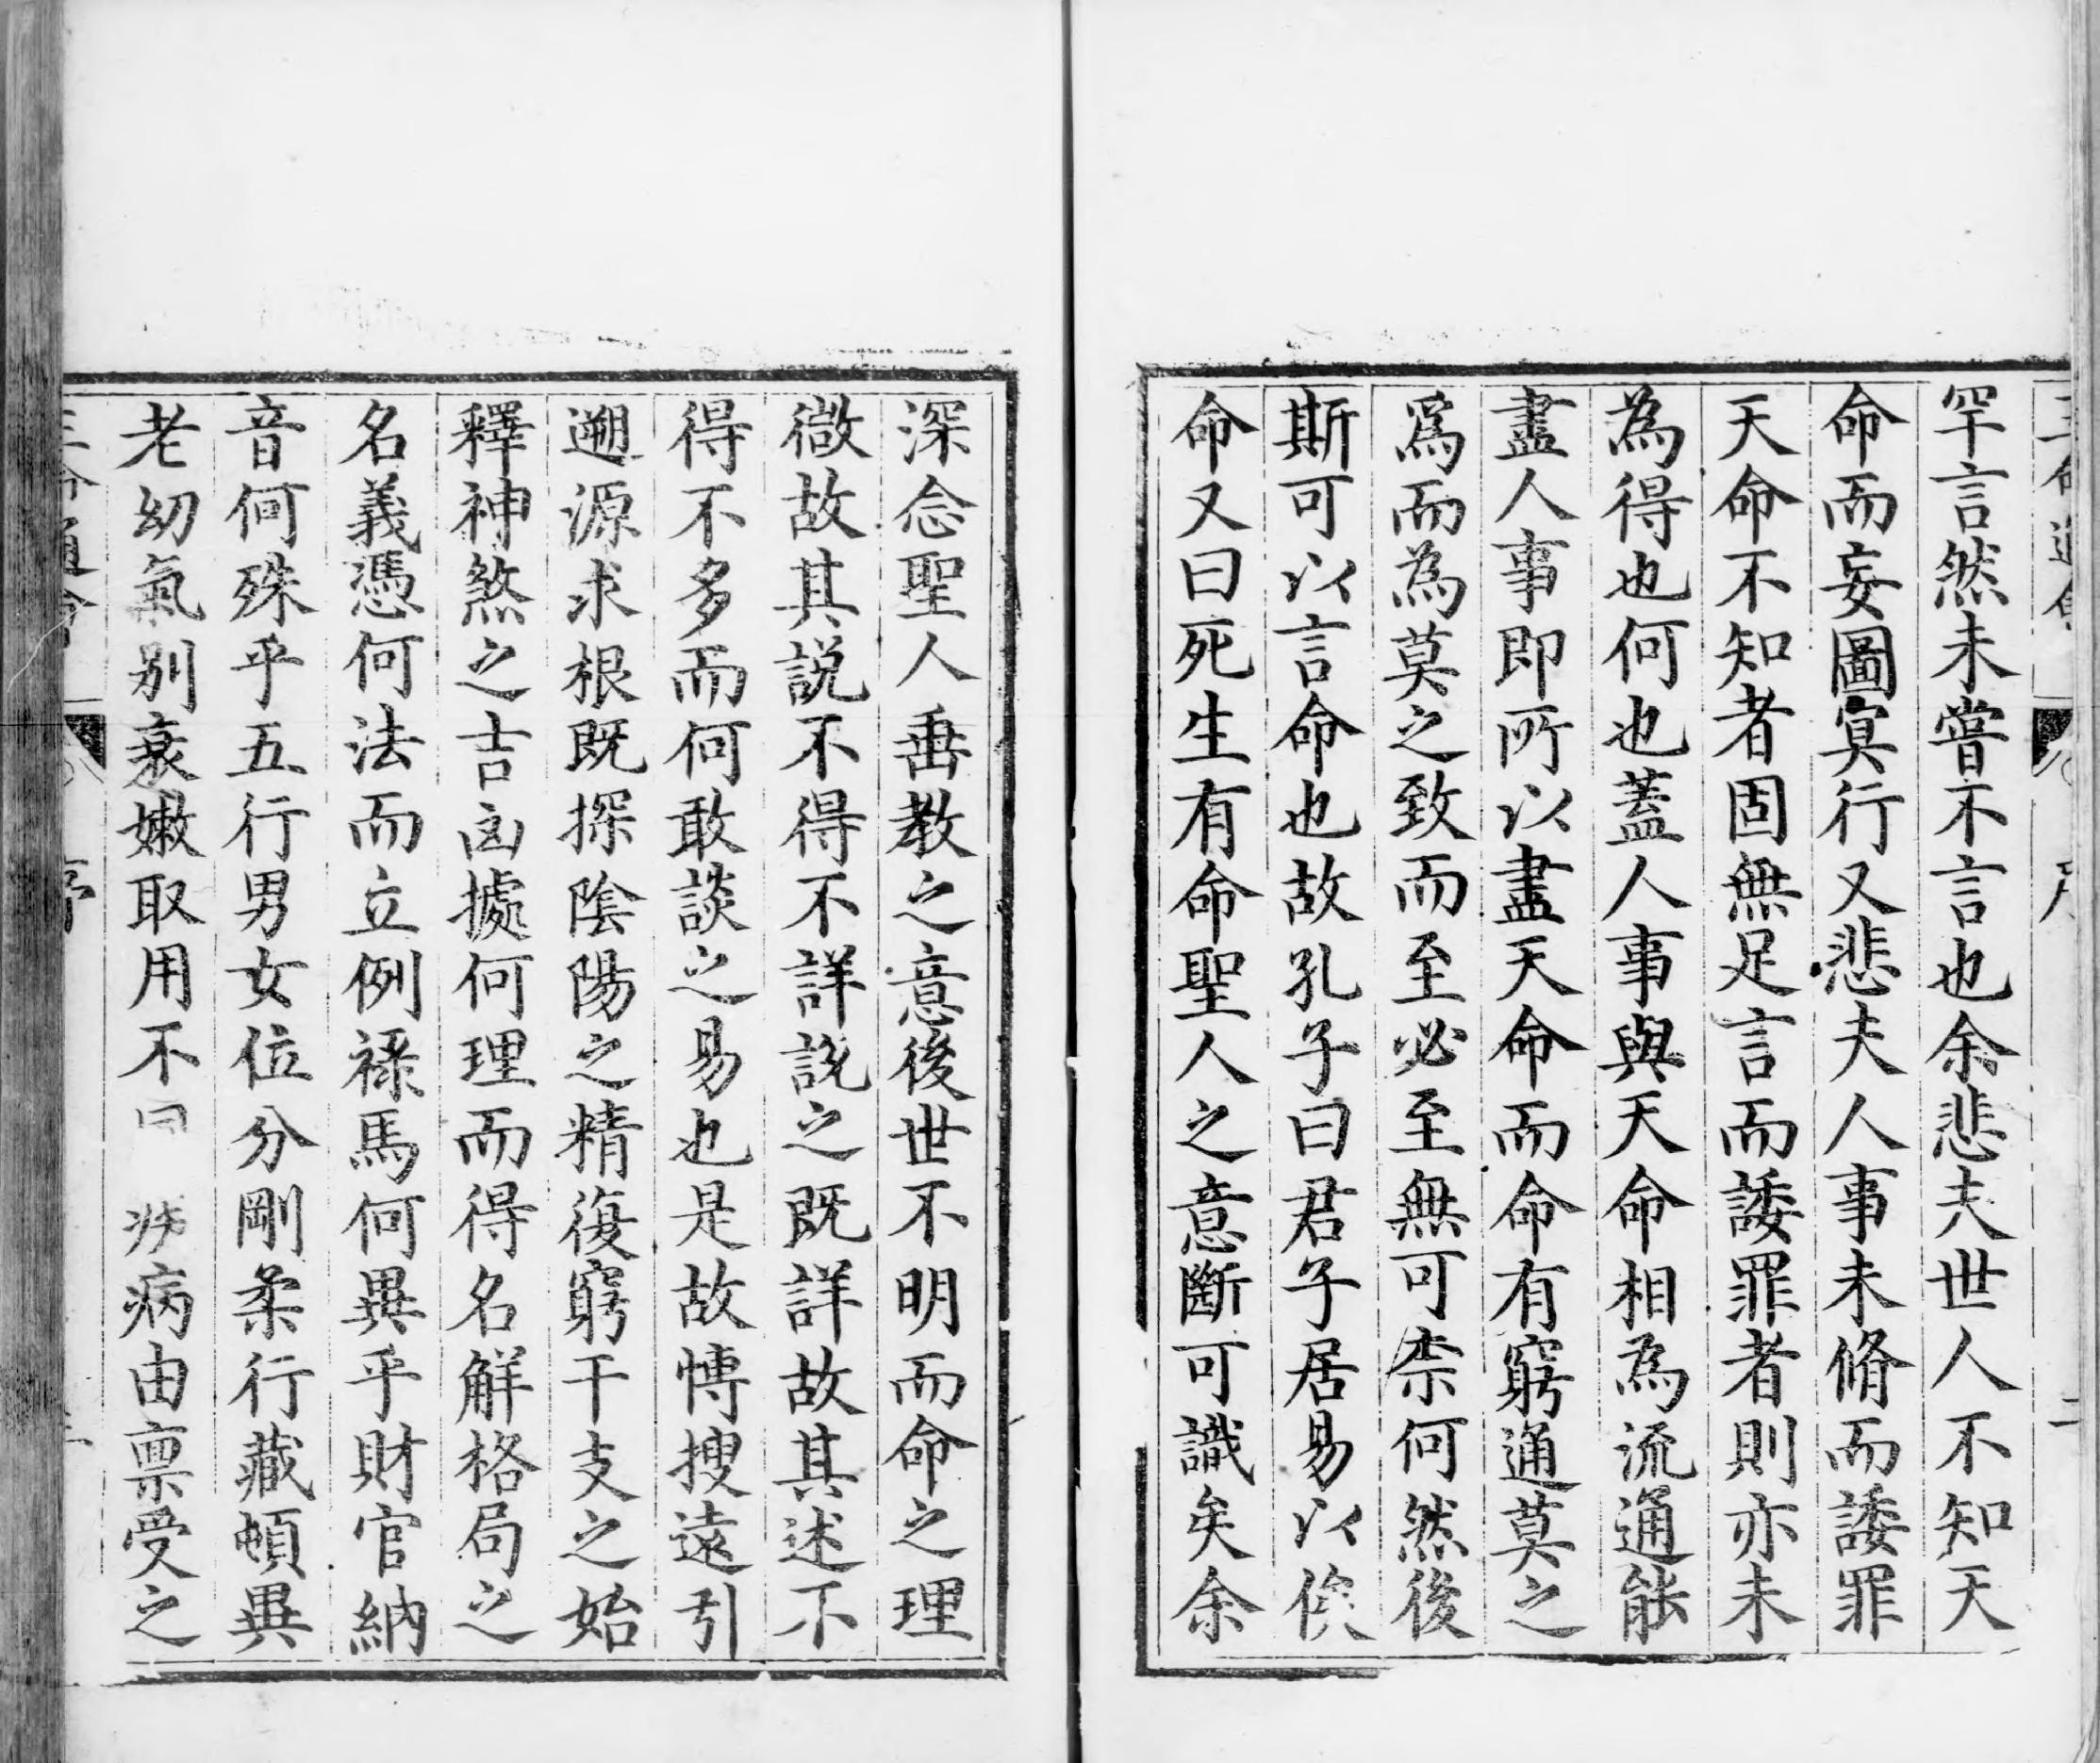 三命通會 序 二
罕言然未嘗不言也余悲夫世人不知天
命而妄圖冥行又悲夫人事未脩而諉罪
天命不知者固無足言而諉罪者則亦未
為得也何也蓋人事與天命相為流通能
盡人事即所以盡天命而命有窮通莫之
爲而為莫之致而至必至無可柰何然後
斯可以言命也故孔子曰君子居易以俟
命又曰死生有命聖人之意斷可識矣余
深念聖人垂教之意後世不明而命之理
微故其説不得不詳説之既詳故其述不
得不多而何敢談之易也是故慱搜遠引
遡源求根既探陰陽之精復窮干支之始
釋神煞之吉凶據何理而得名觧格局之
名義憑何法而立例祿馬何異乎財官納
音何殊乎五行男女位分剛柔行藏頓異
老幼氣别衰嫩取用不病由禀受之
三命通會 序